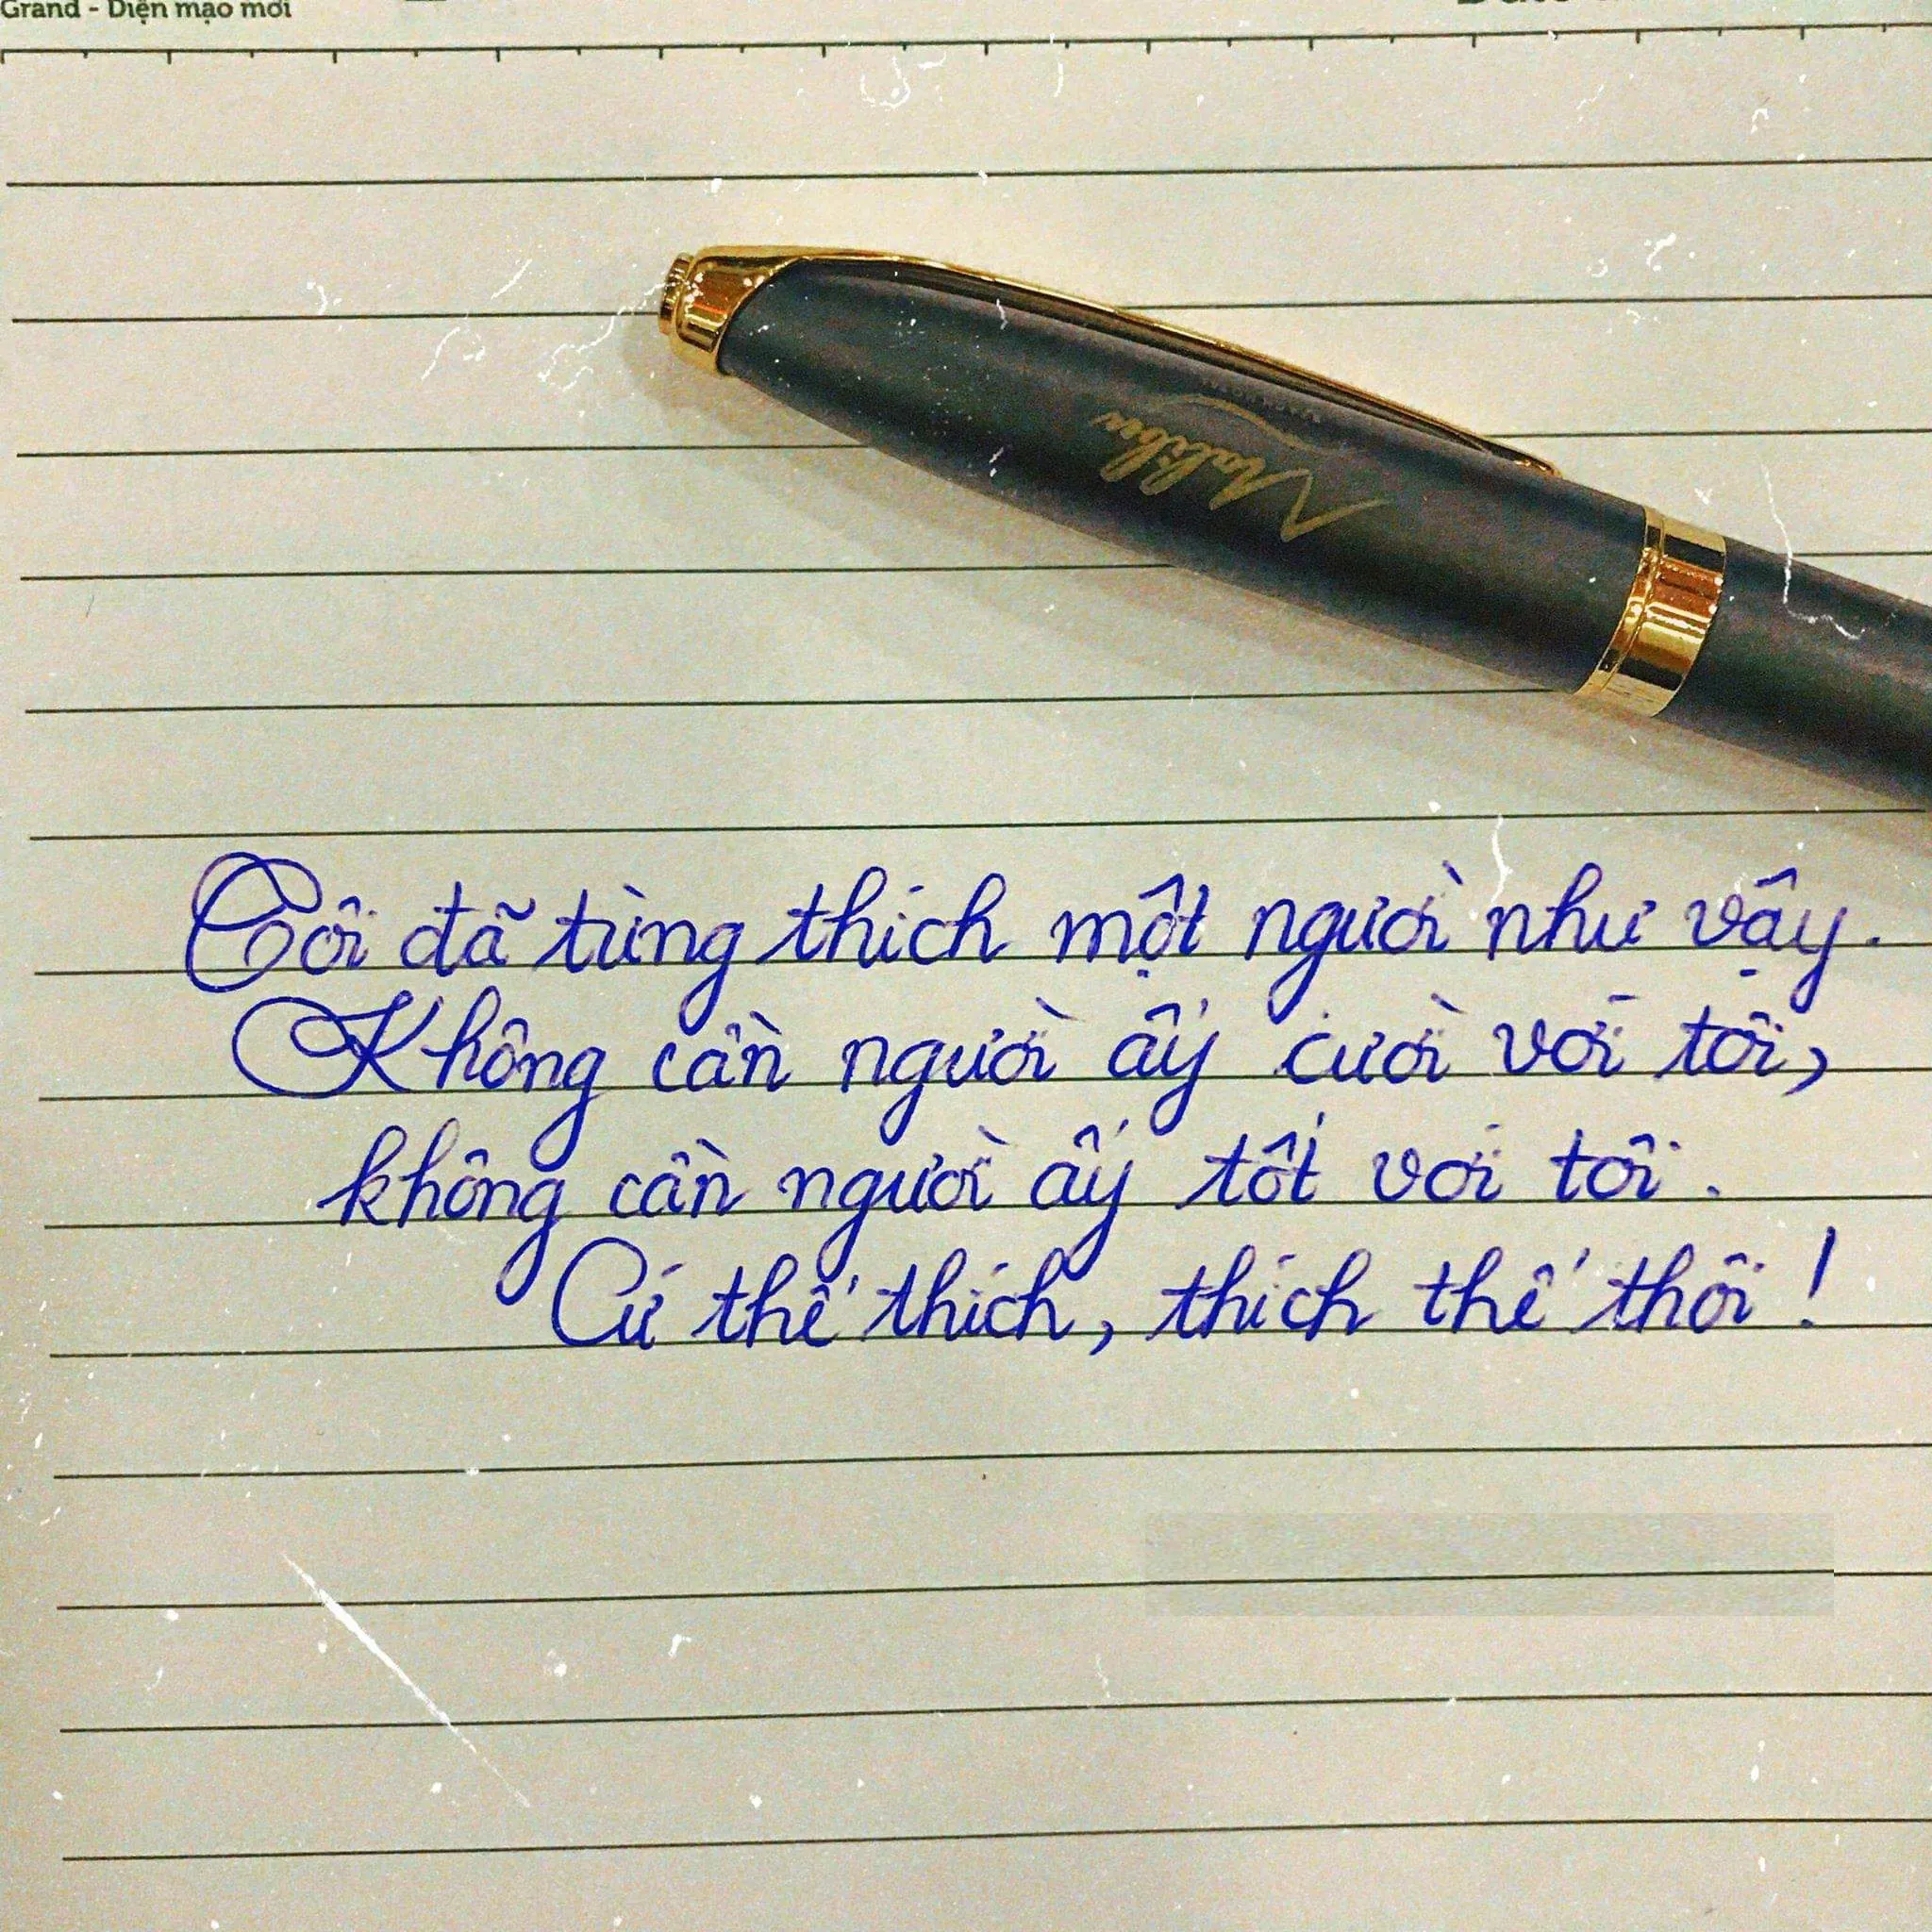 Grand - Diện mạo mới
Malibu
Tôi đã từng thích một người như vậy.
Không cần người ấy cười với tôi,
không cần người ấy tốt với tôi.
Cứ thế thích, thích thế thôi!